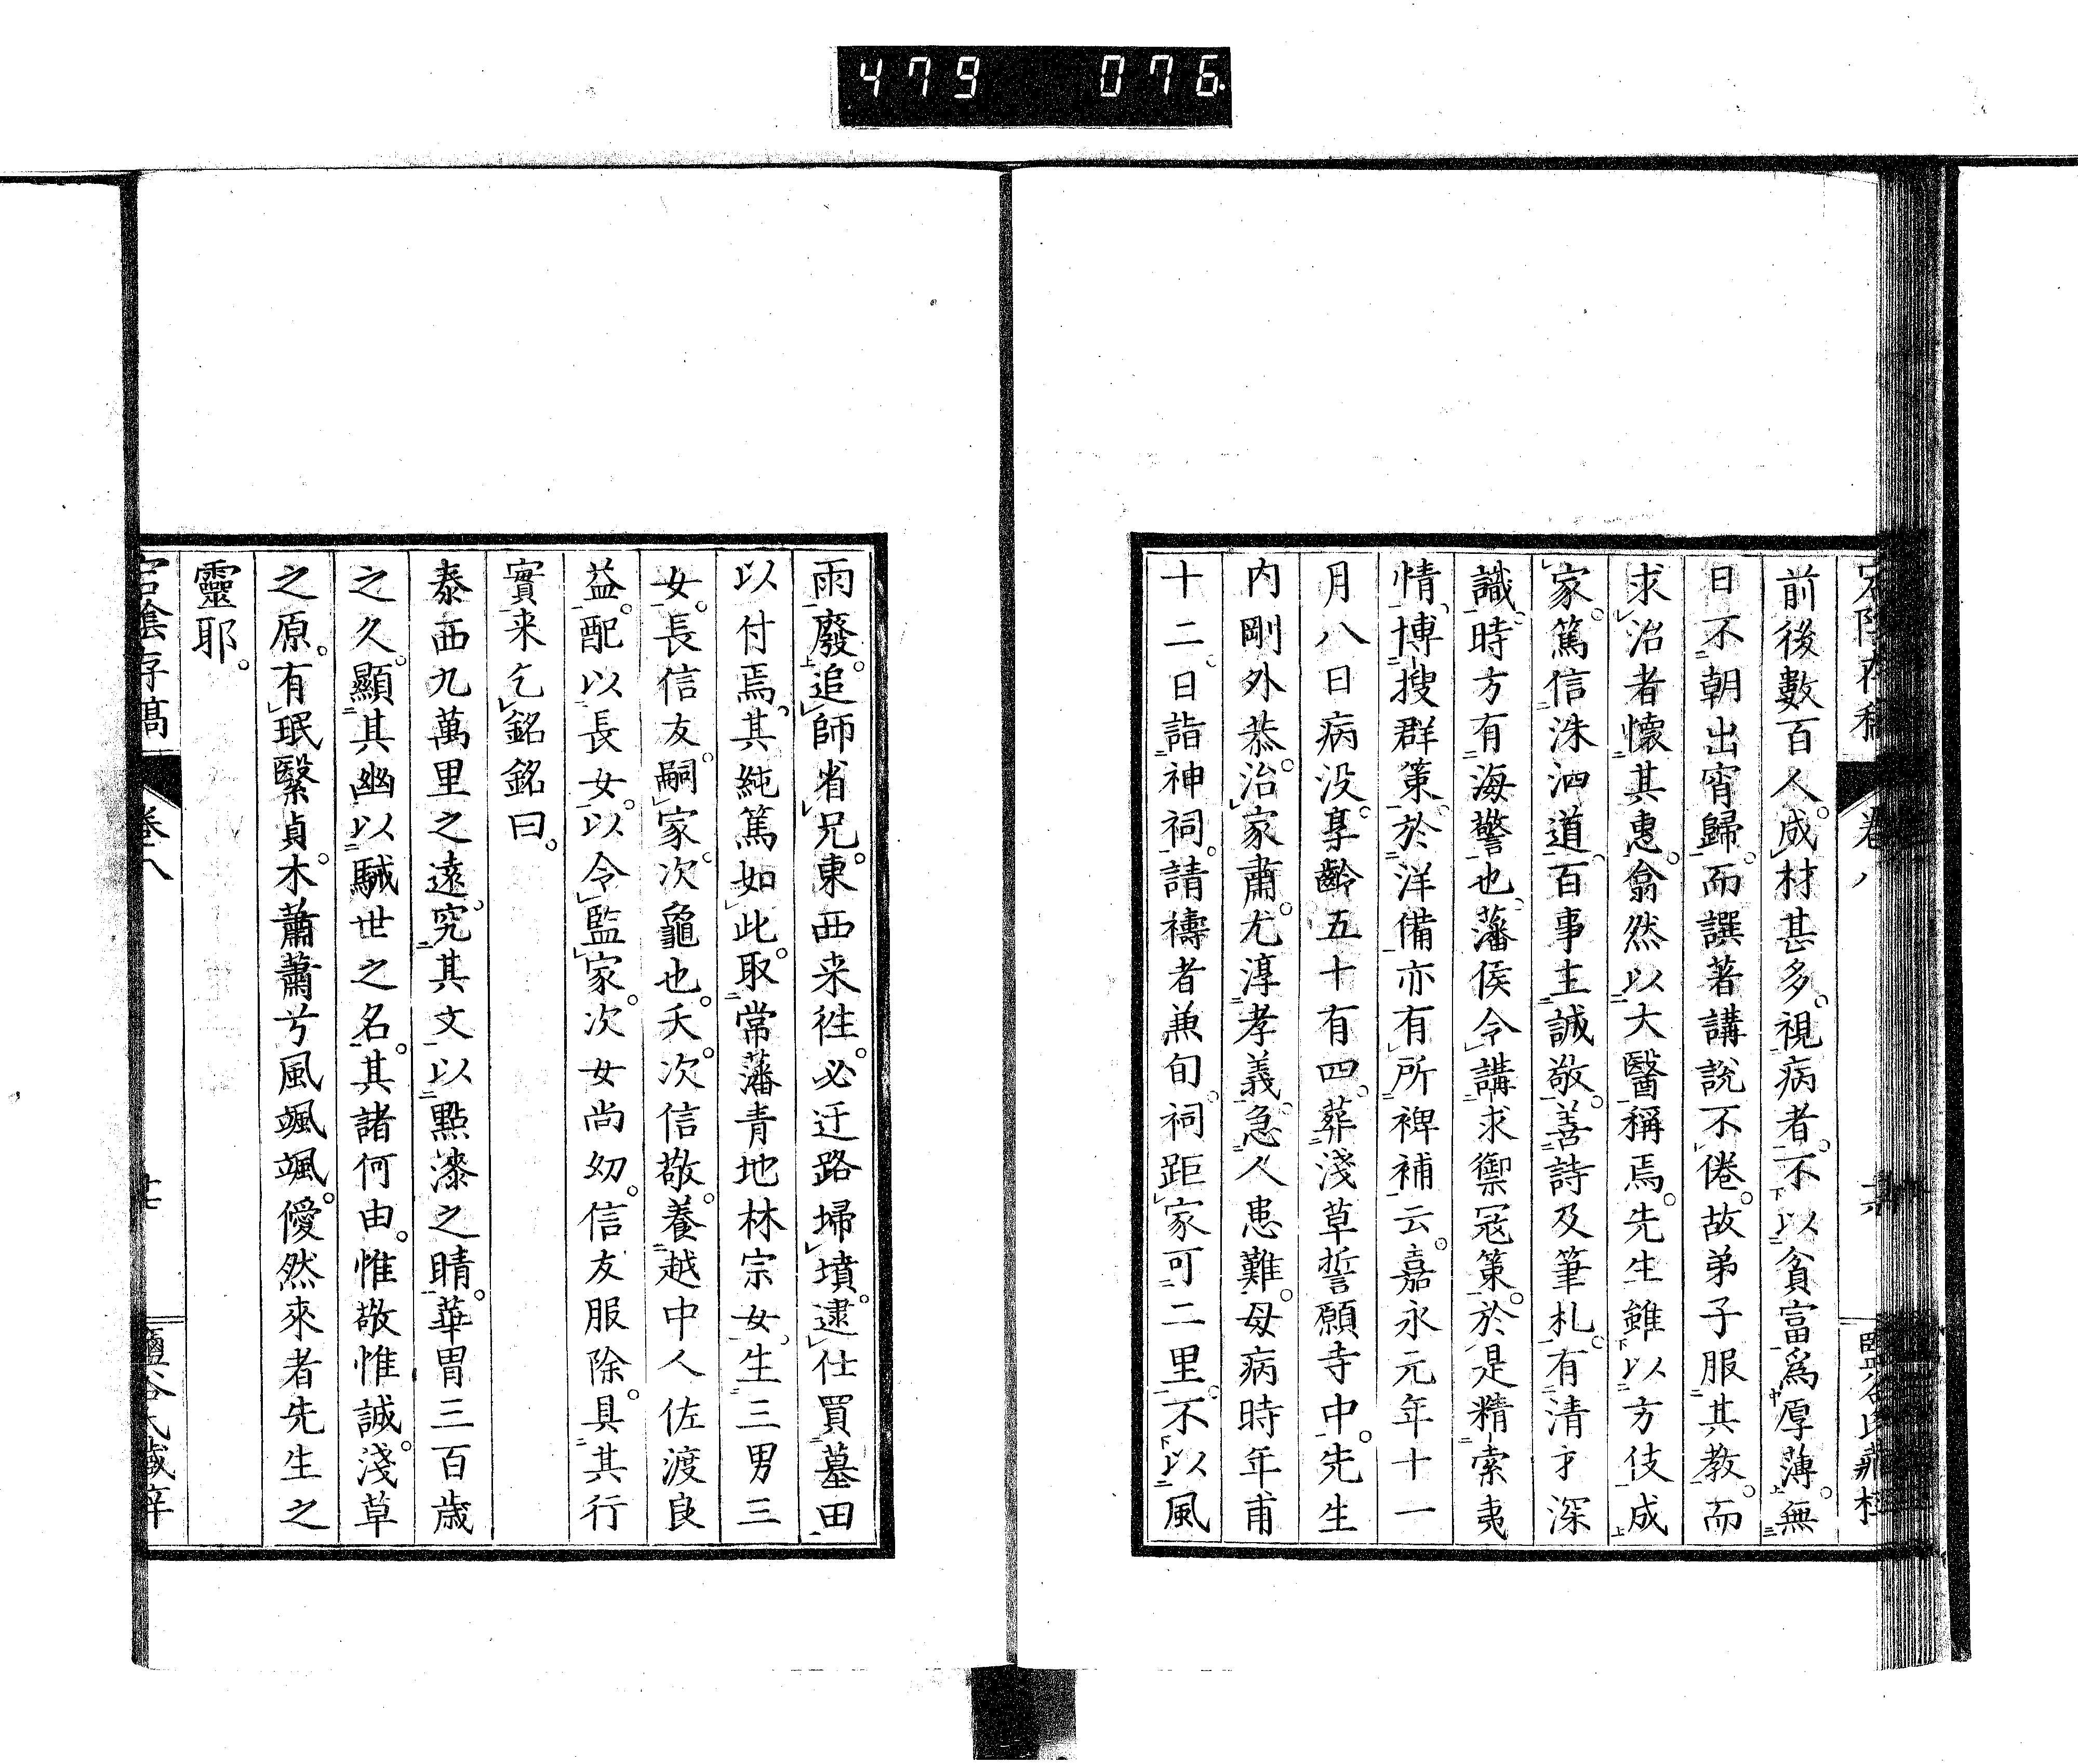 479 076
前後數百人。成材甚多。視病者。不以貧富爲厚薄。無
日不朝出宵歸。而譔著講說不倦。故弟子服其教。而
求治者懷其惠。翕然以大醫稱焉。先生雖以方伎成
家。篤信洙泗道。百事主誠敬。善詩及筆札。有清才深
識。時方有海警也。藩侯令講求禦冦策。於是精索夷
情、博搜群策。於洋備亦有所裨補云。嘉永元年十一
月八日病没。享齡五十有四。葬淺草誓願寺中。先生
内剛外恭。治家肅。尤淳孝義。急人患難。母病時年甫
十二。日詣神祠。請禱者兼旬。祠距家可二里。不以風
雨廢。追師省兄。東西来往。必迂路埽墳。逮仕買墓田
以付焉。其純篤如此。取常藩青地林宗女、生三男三
女。長信友。嗣家。次龜也。夭。次信敬。養越中人佐渡良
益。配以長女。以令監家。次女尚幼。信友服除。具其行
實来乞銘銘曰。
泰西九萬里之遠。究其文以點漆之睛。華胄三百歳
之久。顯其幽以駴世之名。其諸何由。惟敬惟誠。淺草
之原。有珉繄貞。木蕭蕭兮風颯颯。僾然來者先生之
靈耶。
宕陰存稿 卷八 廿七 鹽谷氏藏